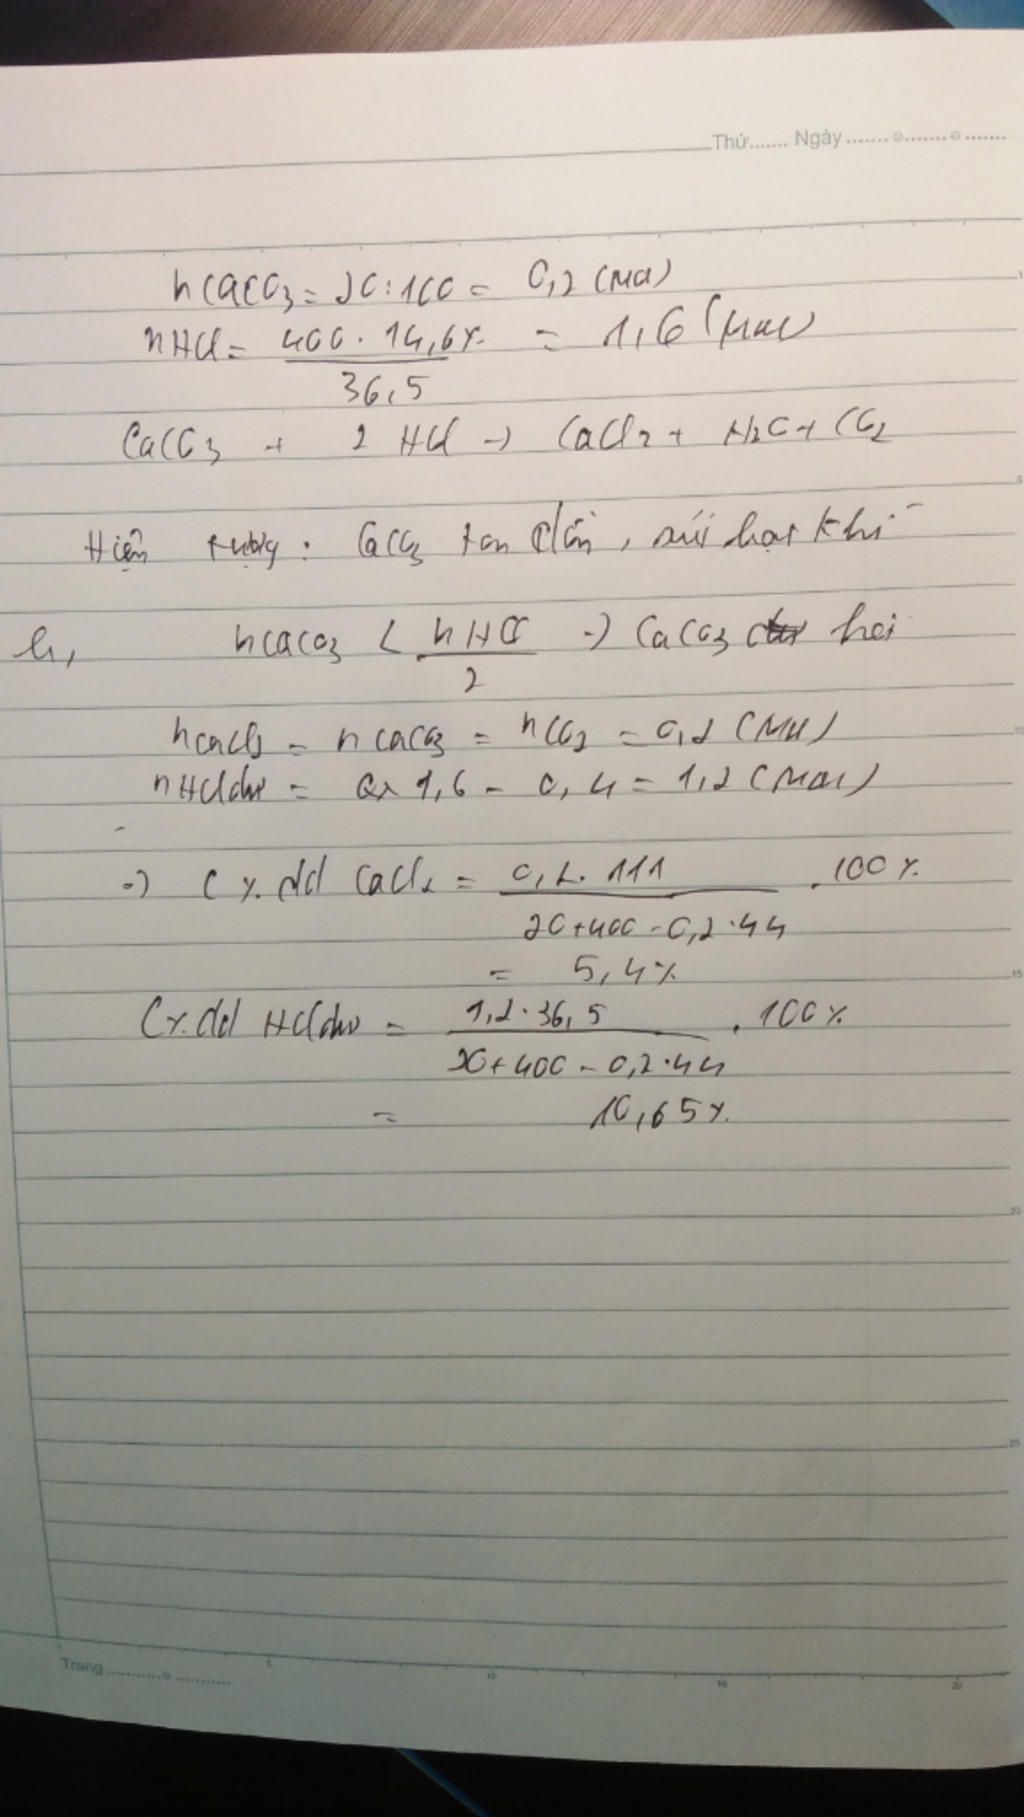 Thứ....... Ngày ....... o ....... o .......
nCaCO3 = 20 : 100 = 0,2 (mol)
nHCl = 400 . 14,6% = 1,6 (mol)
36,5
CaCO3 + 2 HCl -> CaCl2 + H2O + CO2
Hiện tượng : CaCO3 tan dần, sủi bọt khí
b,
nCaCO3 < nHCl -> CaCO3 hết
2
nCaCl2 = nCaCO3 = nCO2 = 0,2 (mol)
nHCl dư = 1,6 - 0,4 = 1,2 (mol)
=> C%dd CaCl2 = 0,2 . 111 . 100%
20+400 - 0,2 . 44
= 5,4%
C%dd HCl dư = 1,2 . 36,5 . 100%
20+400 - 0,2 . 44
= 10,65%
Trang ........... o ...........